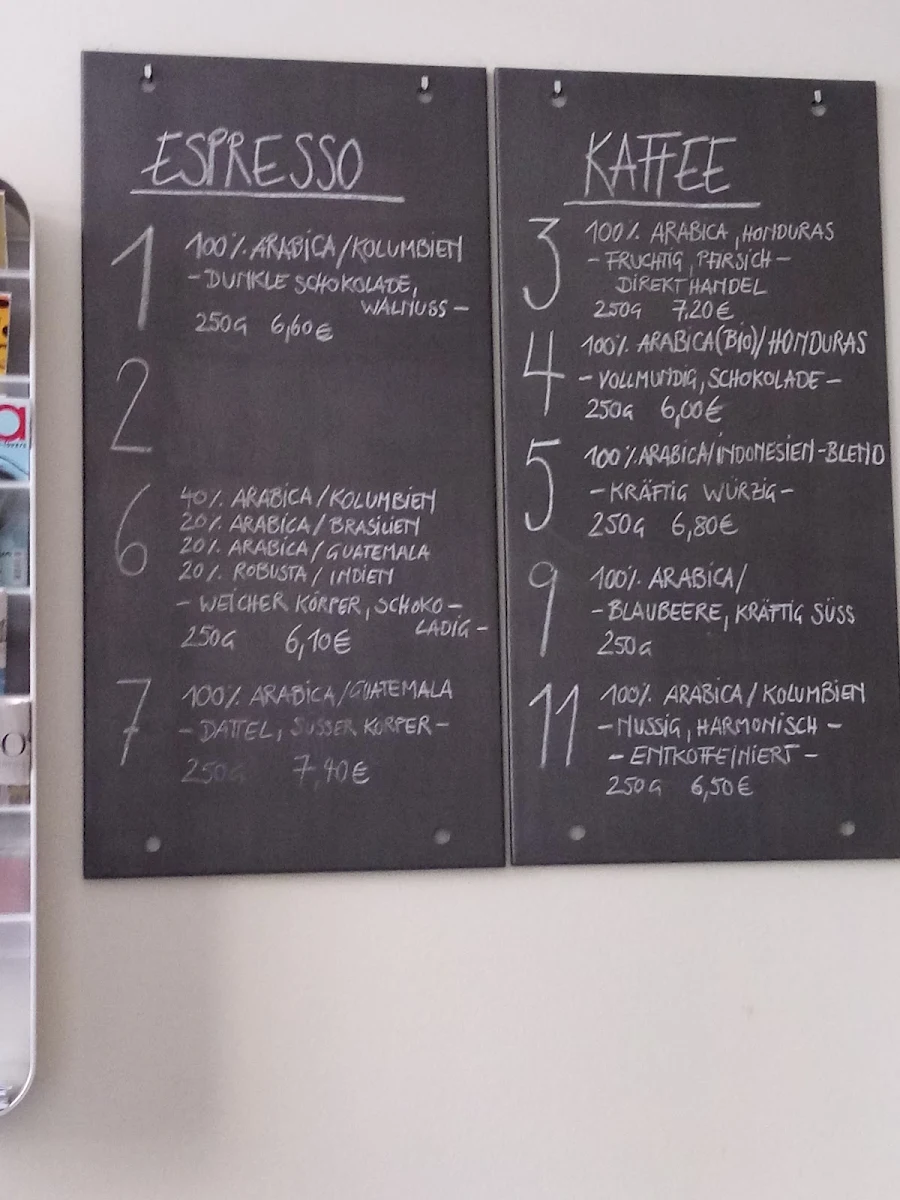 ESPRESSO
1
100% ARABICA/KOLUMBIEN
-DUNKLE SCHOKOLADE,
WALNUSS-
250G 6,60€
2
6
40% ARABICA/KOLUMBIEN
20% ARABICA/BRASILIEN
20% ARABICA/GUATEMALA
20% ROBUSTA/INDIEN
- WEICHER KÖRPER, SCHOKO-
LADIG-
250G 6,10€
7
100% ARABICA/GUATEMALA
-DATTEL, SÜSSER KÖRPER-
250G 7,40€
KAFFEE
3
100% ARABICA, HONDURAS
-FRUCHTIG, PFIRSICH-
DIREKTHANDEL
250G 7,20€
4
100% ARABICA(BIO)/HONDURAS
-VOLLMUNDIG, SCHOKOLADE-
250G 6,00€
5
100% ARABICA/INDONESIEN-BLEND
-KRÄFTIG WÜRZIG-
250G 6,80€
9
100% ARABICA/
-BLAUBEERE, KRÄFTIG SÜSS
250G
11
100% ARABICA/KOLUMBIEN
-NUSSIG, HARMONISCH-
-ENTKOFFEINIERT-
250G 6,50€